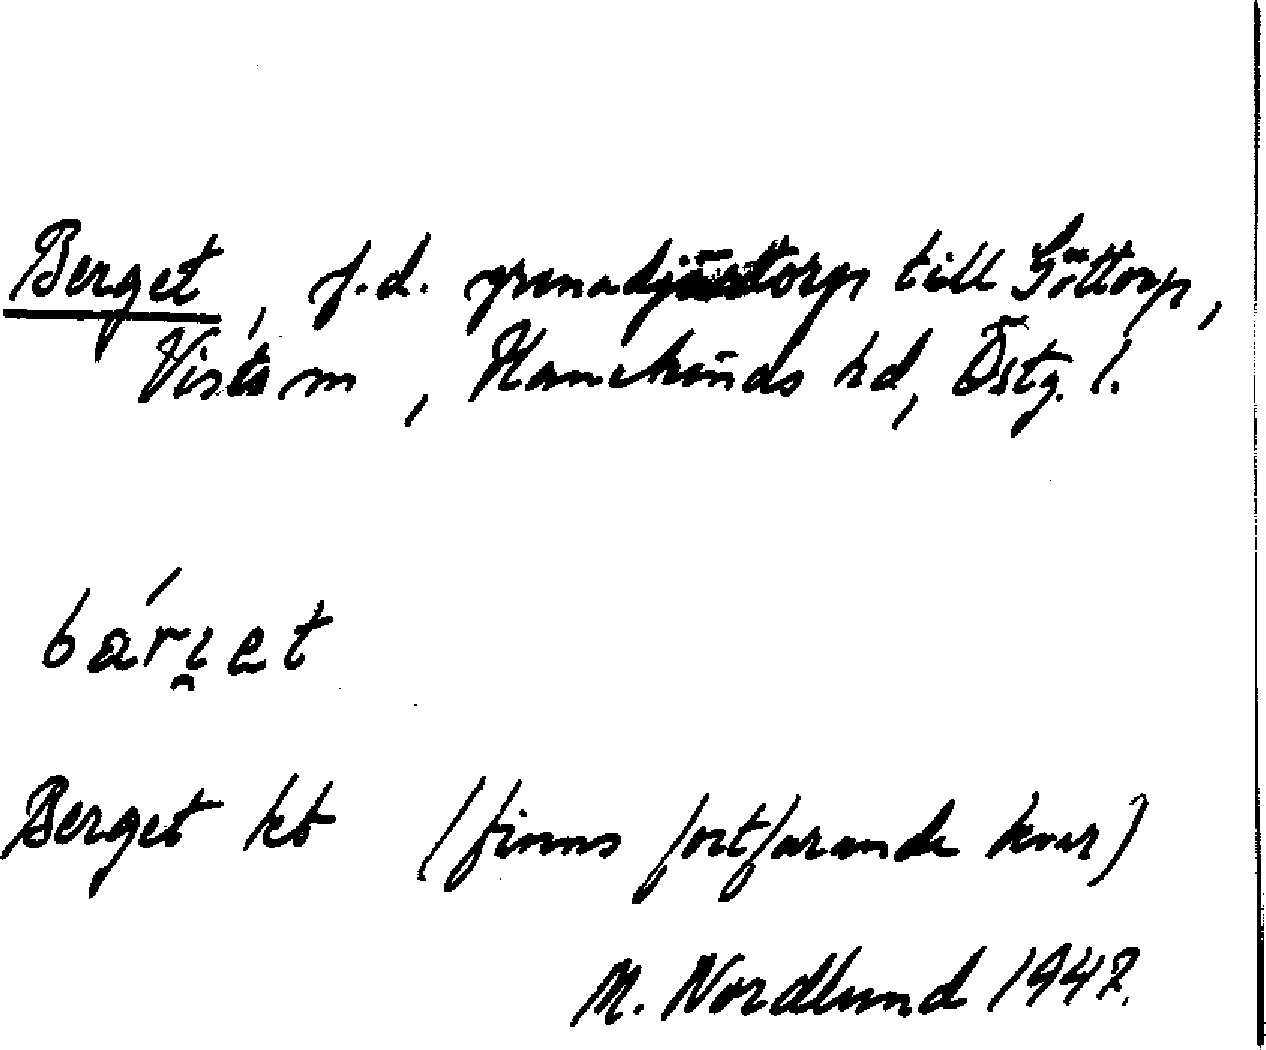 Berget, f.d. grenadjärstorp till Göttorp,
Vists sn, Hanekinds hd, Östg. l.
bári̯et
Berget kb (finns fortfarande kvar)
M. Nordlund 1947.